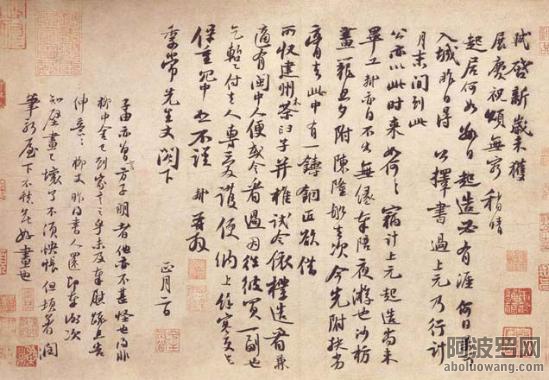 軾啓新歲未獲
展慶祝頌無窮稍晴
起居何如數日起造必有涯何日果可
入城昨日得公擇書過上元乃行計
月末間到此
公亦以此時來如何〻竊計上元起造尚未
畢工軾亦自不出無緣奉陪夜遊也沙枋
畫籠旦夕附陳隆船去次今先附扶劣
膏去此中有一鑄銅匠欲借
所收建州木茶臼子并椎試令依樣造看兼
適有閩中人便或令看過因往彼買一副也
乞暫付去人專愛護便納上餘寒更乞
保重冗中恕不謹 軾再拜
季常先生丈閣下
正月二日
子由亦曾言方子明者他亦不甚怪也得非
柳中舍已到家言之乎未及奉慰疏且告
伸意〻柳丈昨得書人還即奉謝次
知壁畫已壞了不須怏悵但頓著潤
筆新屋下不愁無好畫也
阿波罗网
aboluowang.com